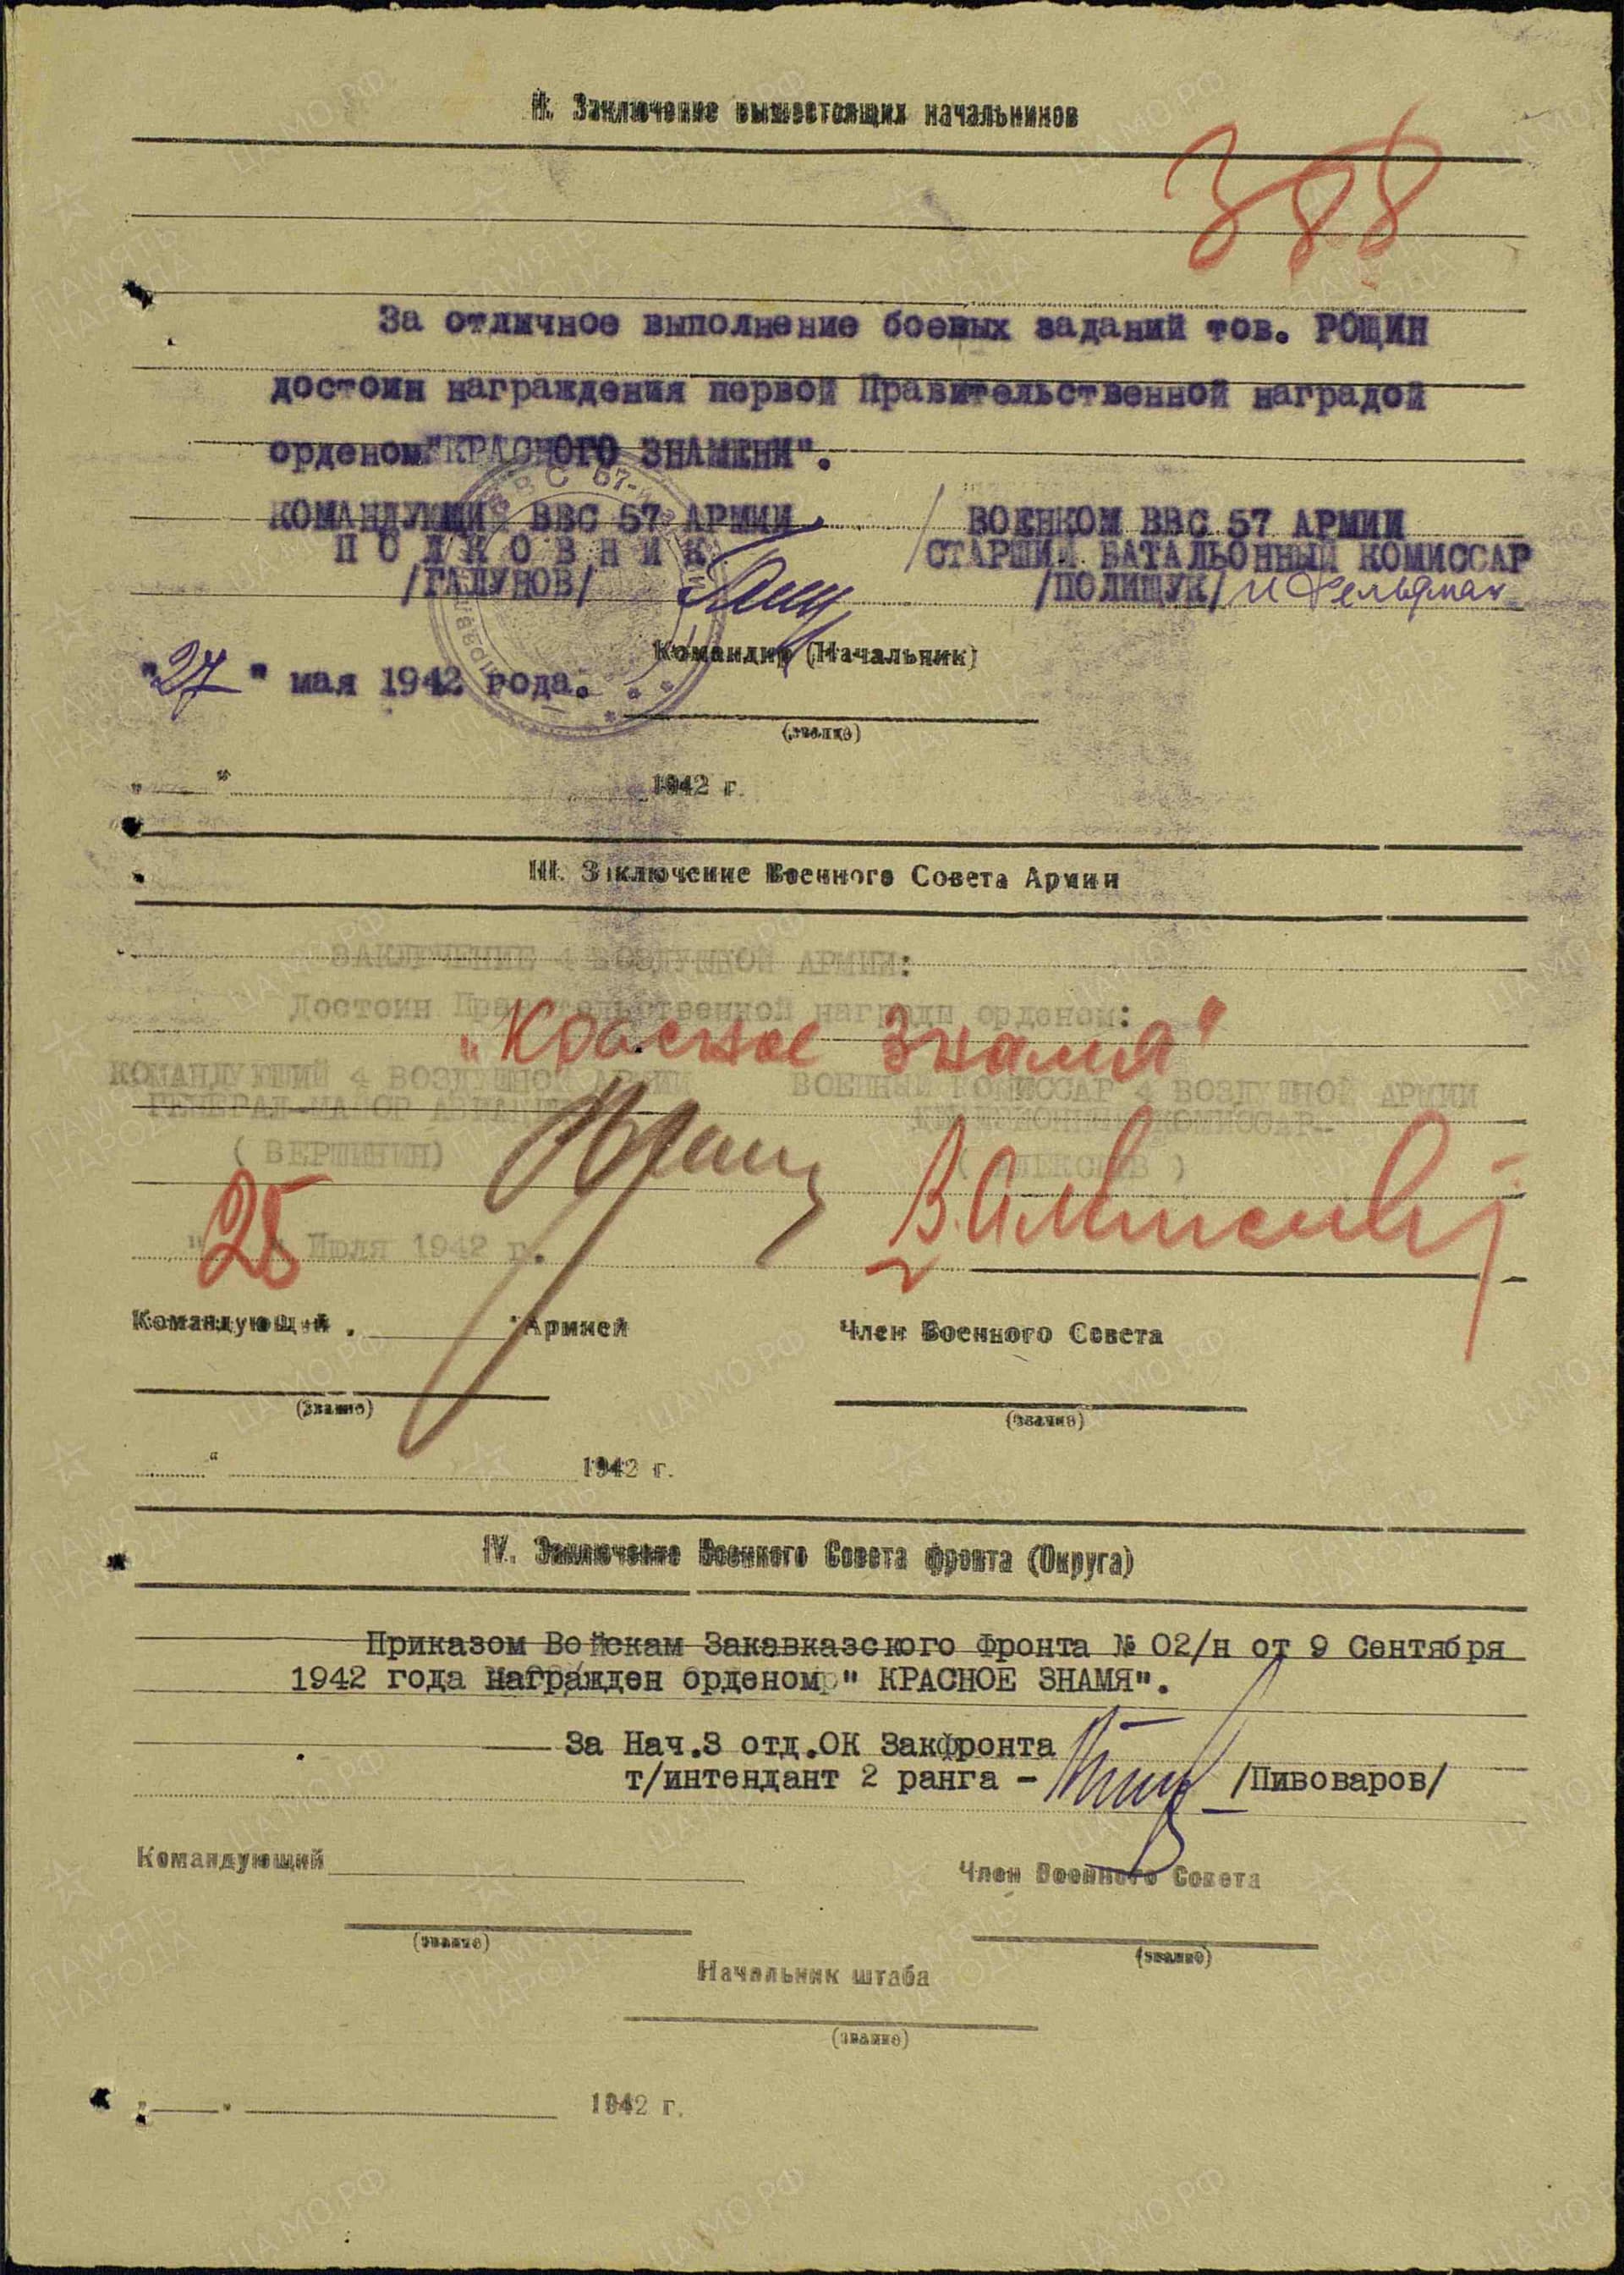 II. Заключение вышестоящих начальников
388
За отличное выполнение боевых заданий тов. РОЩИН
достоин награждения первой Правительственной наградой
орденом "КРАСНОГО ЗНАМЕНИ".
КОМАНДУЮЩИЙ ВВС 57 АРМИИ
ПОЛКОВНИК
/ГАЛУНОВ/
ВОЕНКОМ ВВС 57 АРМИИ
СТАРШИЙ БАТАЛЬОННЫЙ КОМИССАР
/ПОЛИЩУК/
Командир (Начальник)
"27" мая 1942 года.
(звание)
„ " 1942 г.
III. Заключение Военного Совета Армии
ЗАКЛЮЧЕНИЕ 4 ВОЗДУШНОЙ АРМИИ:
Достоин Правительственной награды орденом:
"Красное Знамя"
КОМАНДУЮЩИЙ 4 ВОЗДУШНОЙ АРМИИ
ГЕНЕРАЛ-МАЙОР АВИАЦИИ
( ВЕРШИНИН)
ВОЕННЫЙ КОМИССАР 4 ВОЗДУШНОЙ АРМИИ
КОМИССАР-
( АЛЕКСЕЕВ )
"25" Июля 1942 г.
Командующий Армией
Член Военного Совета
(звание)
(звание)
" 1942 г.
IV. Заключение Военного Совета фронта (Округа)
Приказом Войскам Закавказского Фронта № 02/н от 9 Сентября
1942 года награжден орденом " КРАСНОЕ ЗНАМЯ".
За Нач.3 отд.ОК Закфронта
т/интендант 2 ранга - /Пивоваров/
Командующий
Член Военного Совета
(звание)
(звание)
Начальник штаба
(звание)
„ " 1942 г.